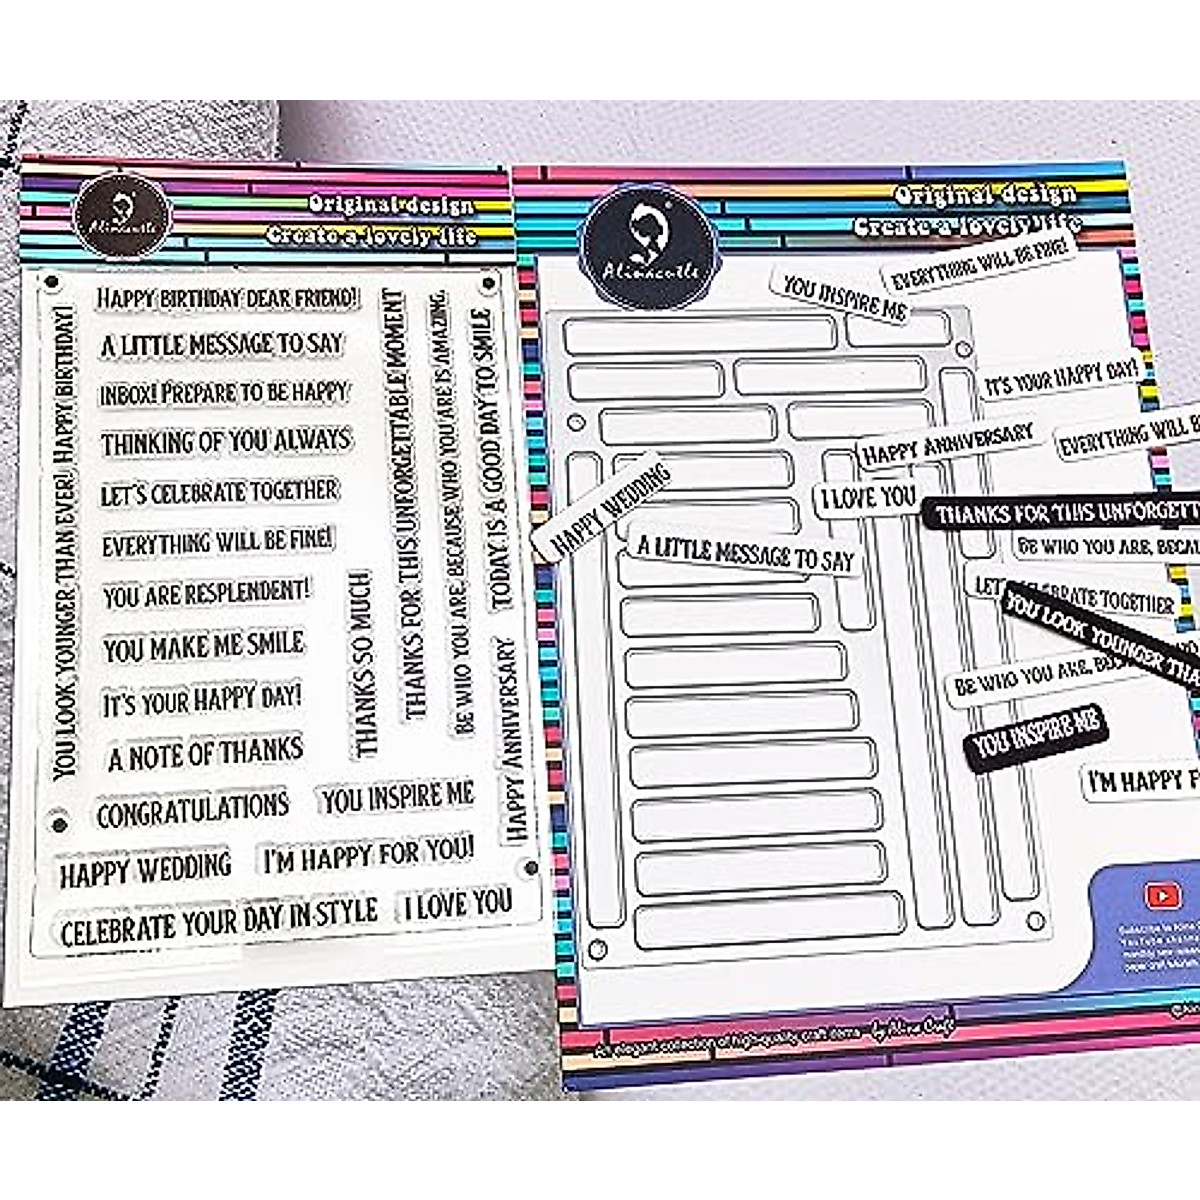 Alinacutle
Original design
Create a lovely life
HAPPY BIRTHDAY DEAR FRIEND!
A LITTLE MESSAGE TO SAY
INBOX! PREPARE TO BE HAPPY
THINKING OF YOU ALWAYS
LET'S CELEBRATE TOGETHER
EVERYTHING WILL BE FINE!
YOU ARE RESPLENDENT!
YOU MAKE ME SMILE
IT'S YOUR HAPPY DAY!
A NOTE OF THANKS
CONGRATULATIONS
YOU INSPIRE ME
HAPPY WEDDING
I'M HAPPY FOR YOU!
CELEBRATE YOUR DAY IN STYLE
I LOVE YOU
YOU LOOK YOUNGER THAN EVER! HAPPY BIRTHDAY!
THANKS SO MUCH
THANKS FOR THIS UNFORGETTABLE MOMENT
BE WHO YOU ARE, BECAUSE WHO YOU ARE IS AMAZING
TODAY IS A GOOD DAY TO SMILE
HAPPY ANNIVERSARY
Alinacutle
Original design
Create a lovely life
EVERYTHING WILL BE FINE!
YOU INSPIRE ME
IT'S YOUR HAPPY DAY!
HAPPY ANNIVERSARY
EVERYTHING WILL B
HAPPY WEDDING
I LOVE YOU
THANKS FOR THIS UNFORGETT
A LITTLE MESSAGE TO SAY
BE WHO YOU ARE, BECAU
LET'S CELEBRATE TOGETHER
YOU LOOK YOUNGER THA
BE WHO YOU ARE, BEC
YOU INSPIRE ME
I'M HAPPY F
An elegant collection of high-quality craft items - by Alina Craft